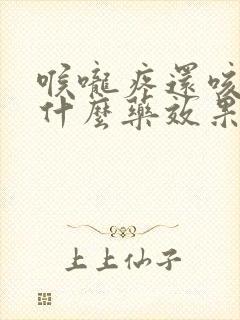 喉嚨疼還咳
什麼藥效果
上上仙子